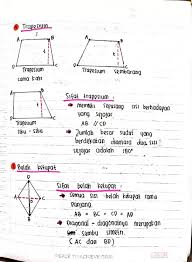 Trapesium
A B
t
D C
Trapesium sama kaki
A B
D C
Trapesium sembarang
A B
t
D C
Trapesium siku - siku
Sifat trapesium :
→ memiliki sepasang sisi berhadapan yang sejajar.
AB // CD
→ Jumlah besar sudut yang berdekatan diantara dua sisi sejajar adalah 180°
Belah ketupat
A
D B
C
Sifat belah ketupat
→ semua sisi belah ketupat sama panjang.
AB = BC = CD = AD
→ Diagonal - diagonalnya merupakan sumbu simetri.
( AC dan BD )